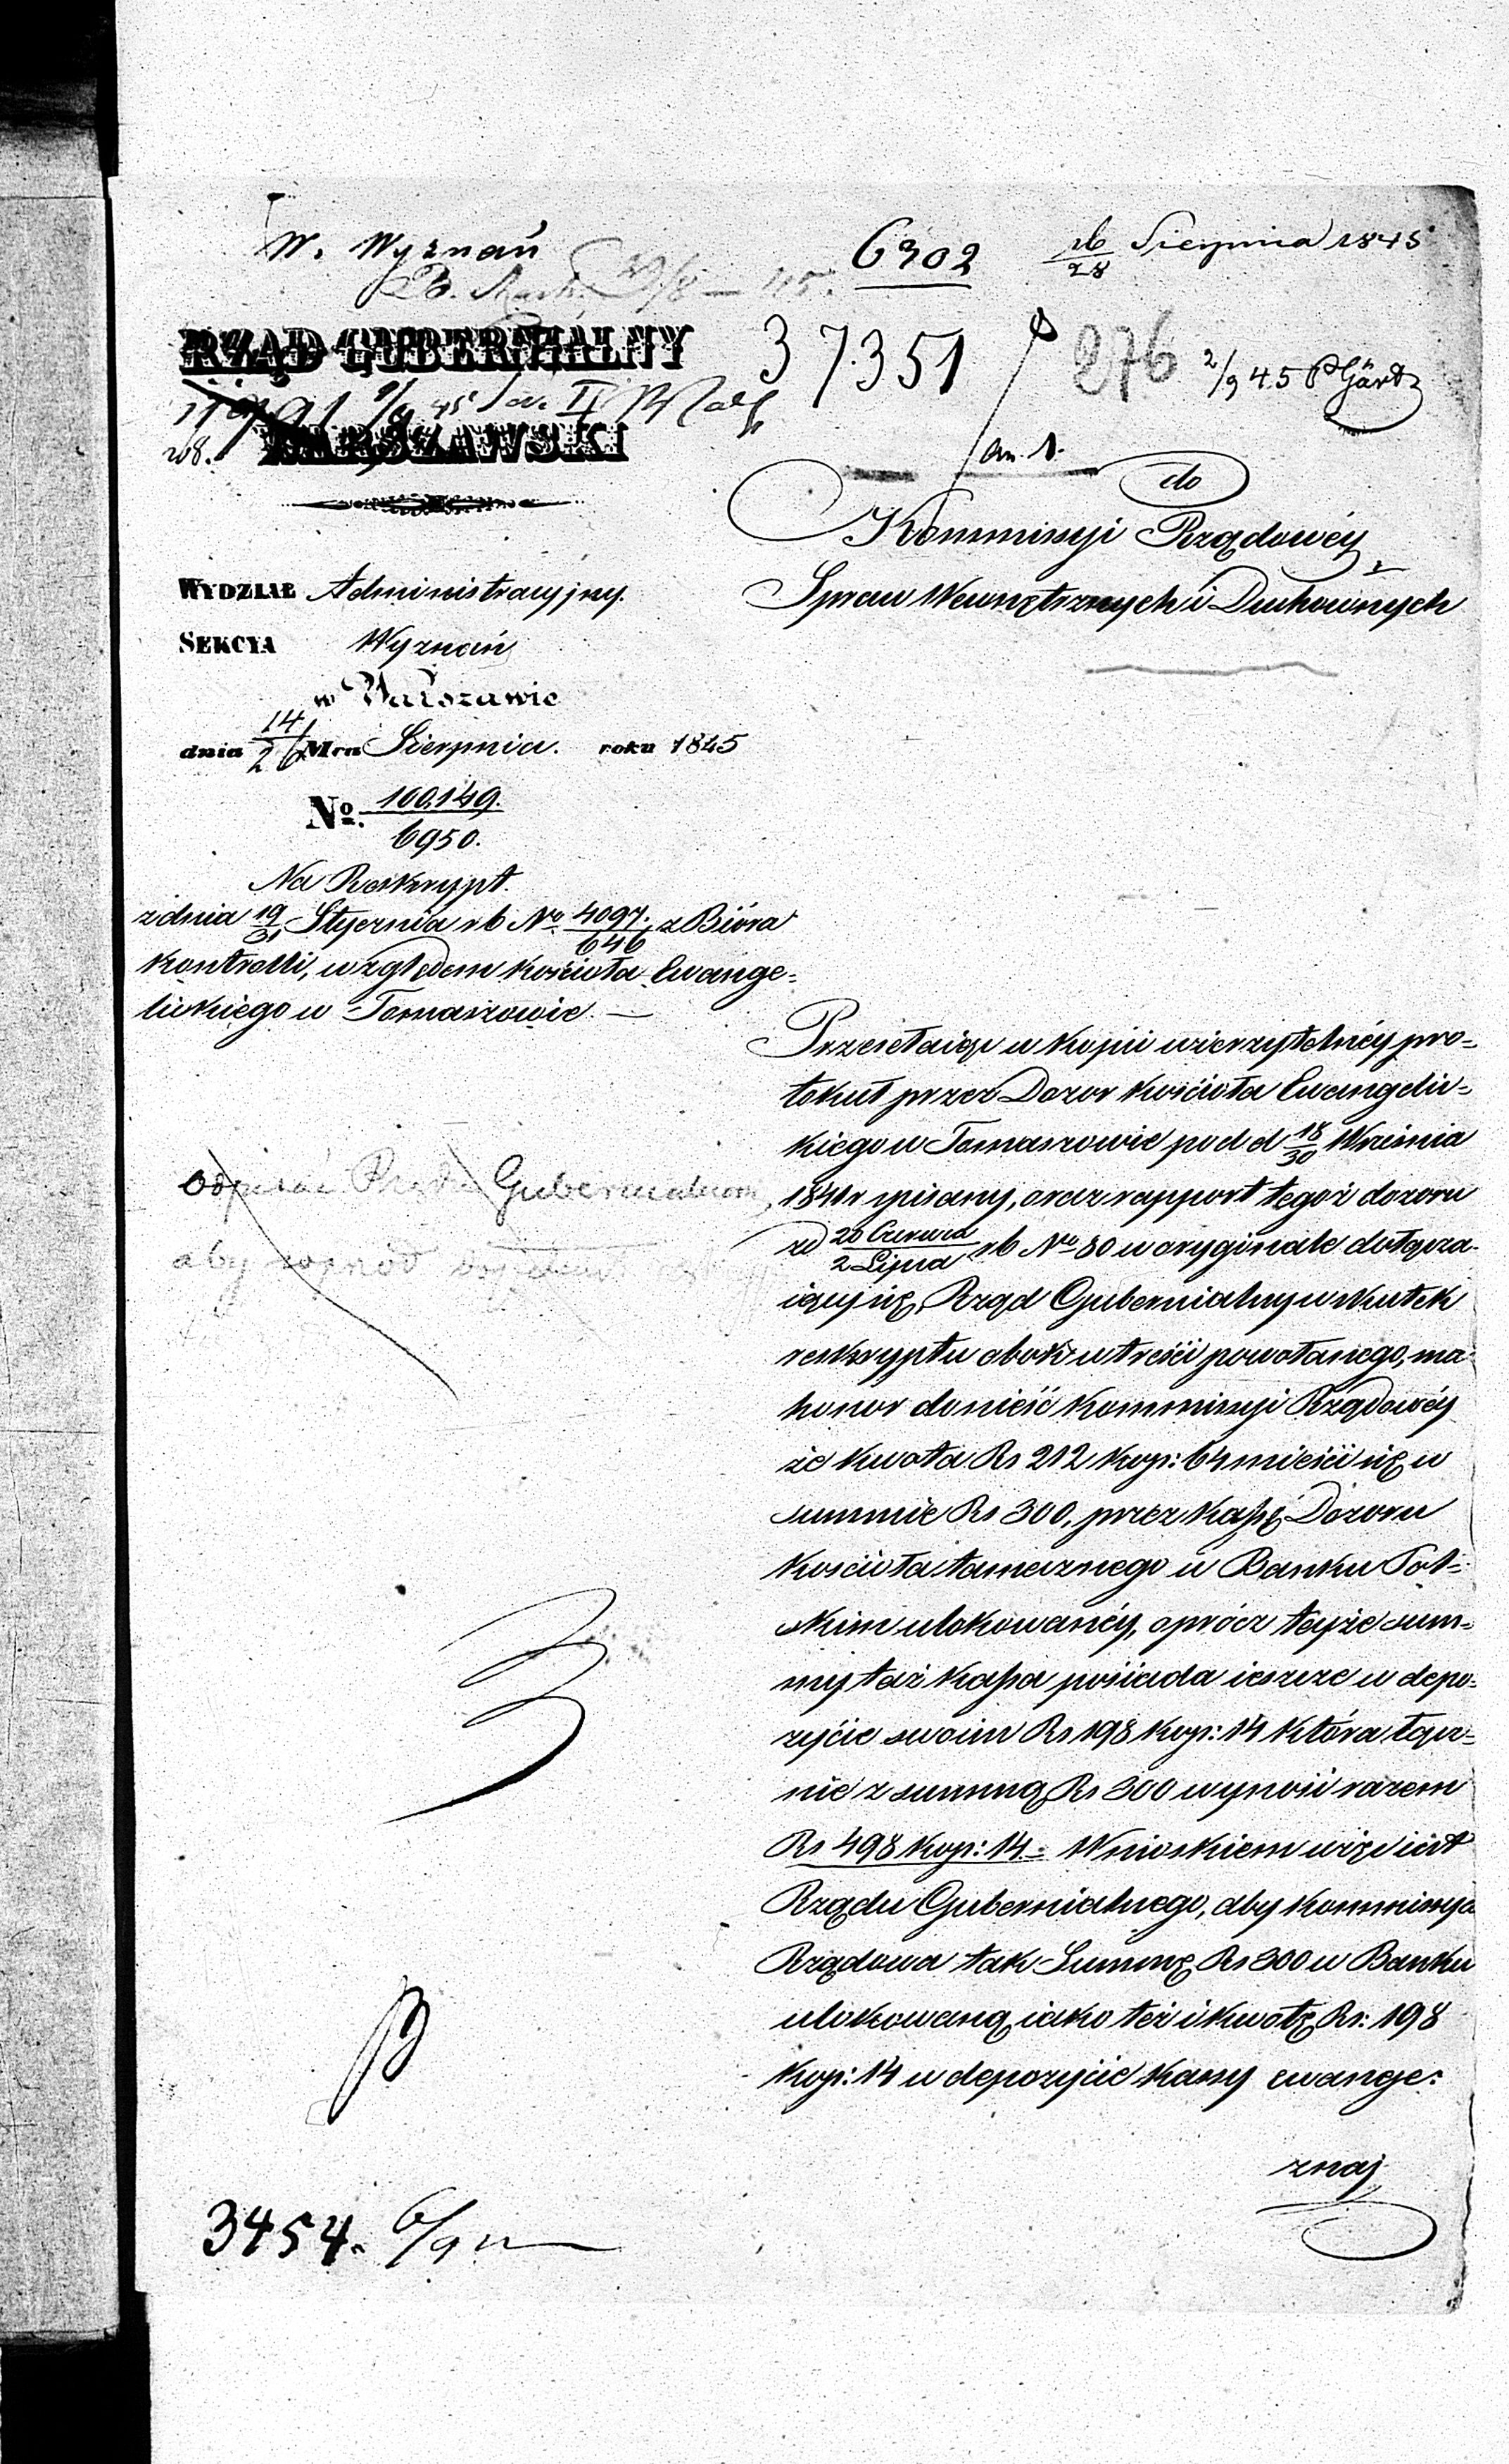 W. Wyznań
6302
16/28 Sierpnia 1845
37351
276
2/9 45 Gärtz
RZĄD GUBERNIALNY
WARSZAWSKI
an. 1.
do
Kommissyi Rządowéy
Spraw Wewnętrznych i Duchownych
WYDZIAŁ Administracyjny.
SEKCYA Wyznań
w Warszawie
dnia 14/26 Mca Sierpnia. roku 1845
No. 100,149./6950.
Na Reskrypt.
z dnia 19/31 Stycznia rb No 4097./646 z Bióra
Kontrolli, względem Kościoła Ewange-
lickiego w Tomaszowie. —
Przesełaiąc w Kopii wierzytelnéy pro-
tokuł przez Dozor Kościoła Ewangelic-
kiego w Tomaszowie pod d 18/30 Września
1841r spisany, oraz rapport tegoż dozoru
zd 20 Czerwca/2 Lipca rb No 80 w oryginale dołącza-
iący się, Rząd Gubernialny w skutek
reskryptu obok w treści powołanego, ma
honor donieść Kommissyi Rządowéy
że kwota Rs 212 kop: 64 mieści się w
summie Rs 300, przez Kassę Dozoru
Kościoła tamecznego w Banku Pol-
skim ulokowanéy, oprócz teyże sum-
my taż Kassa posiada ieszcze w depo-
zycie swoim Rs 198 Kop: 14 która łącz-
nie z summą Rs 300 wynosi razem
Rs 498 Kop: 14. - Wnioskiem więc iest
Rządu Gubernialnego, aby Kommissya
Rządowa tak Summę Rs 300 w Banku
ulokowaną iako też i kwotę Rs: 198
Kop: 14 w depozycie Kassy ewange:
znaj
Odpisać Rządowi Gubernialnem
aby
3454. 6/9